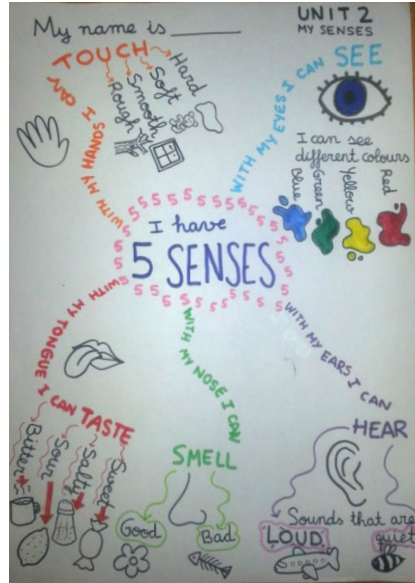 My name is ________
UNIT 2
MY SENSES
WITH MY HANDS I CAN
TOUCH
Rough
Smooth
Soft
Hard
WITH MY EYES I CAN SEE
I can see
different colours
Blue
Green
Yellow
Red
5 5 5 5 5 5 5 5 5 5 5 5 5 5 5 5 5 5 5 5 5 5 5 5 5 5 5 5 5 5 5 5 5 5 5 5
I have
5 SENSES
WITH MY TONGUE I CAN TASTE
Bitter
Sour
Salty
Sweet
WITH MY NOSE I CAN
SMELL
Good
Bad
WITH MY EARS I CAN
HEAR
Sounds that are
LOUD
quiet